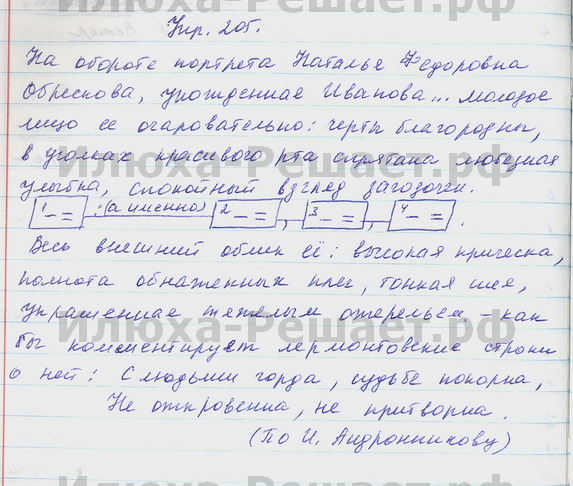 Упр. 205.
На обороте портрета Наталья Федоровна
Обрескова, урожденная Иванова... Молодое
лицо ее очаровательно: черты благородны,
в уголках красивого рта спрятана любезная
улыбка, спокойный взгляд загадочен.
[1 – =] : (а именно) [2 – =], [3 – =], [4 – =].
Весь внешний облик её: высокая прическа,
полнота обнаженных плеч, тонкая шея,
украшенная тяжелым ожерельем, – как
бы комментирует лермонтовские строки
о ней: С людьми горда, судьбе покорна,
Не откровенна, не притворна.
(По И. Андронникову)
Илюха-Решает.рф
Илюха-Решает.рф
Илюха-Решает.рф
Илюха-Решает.рф